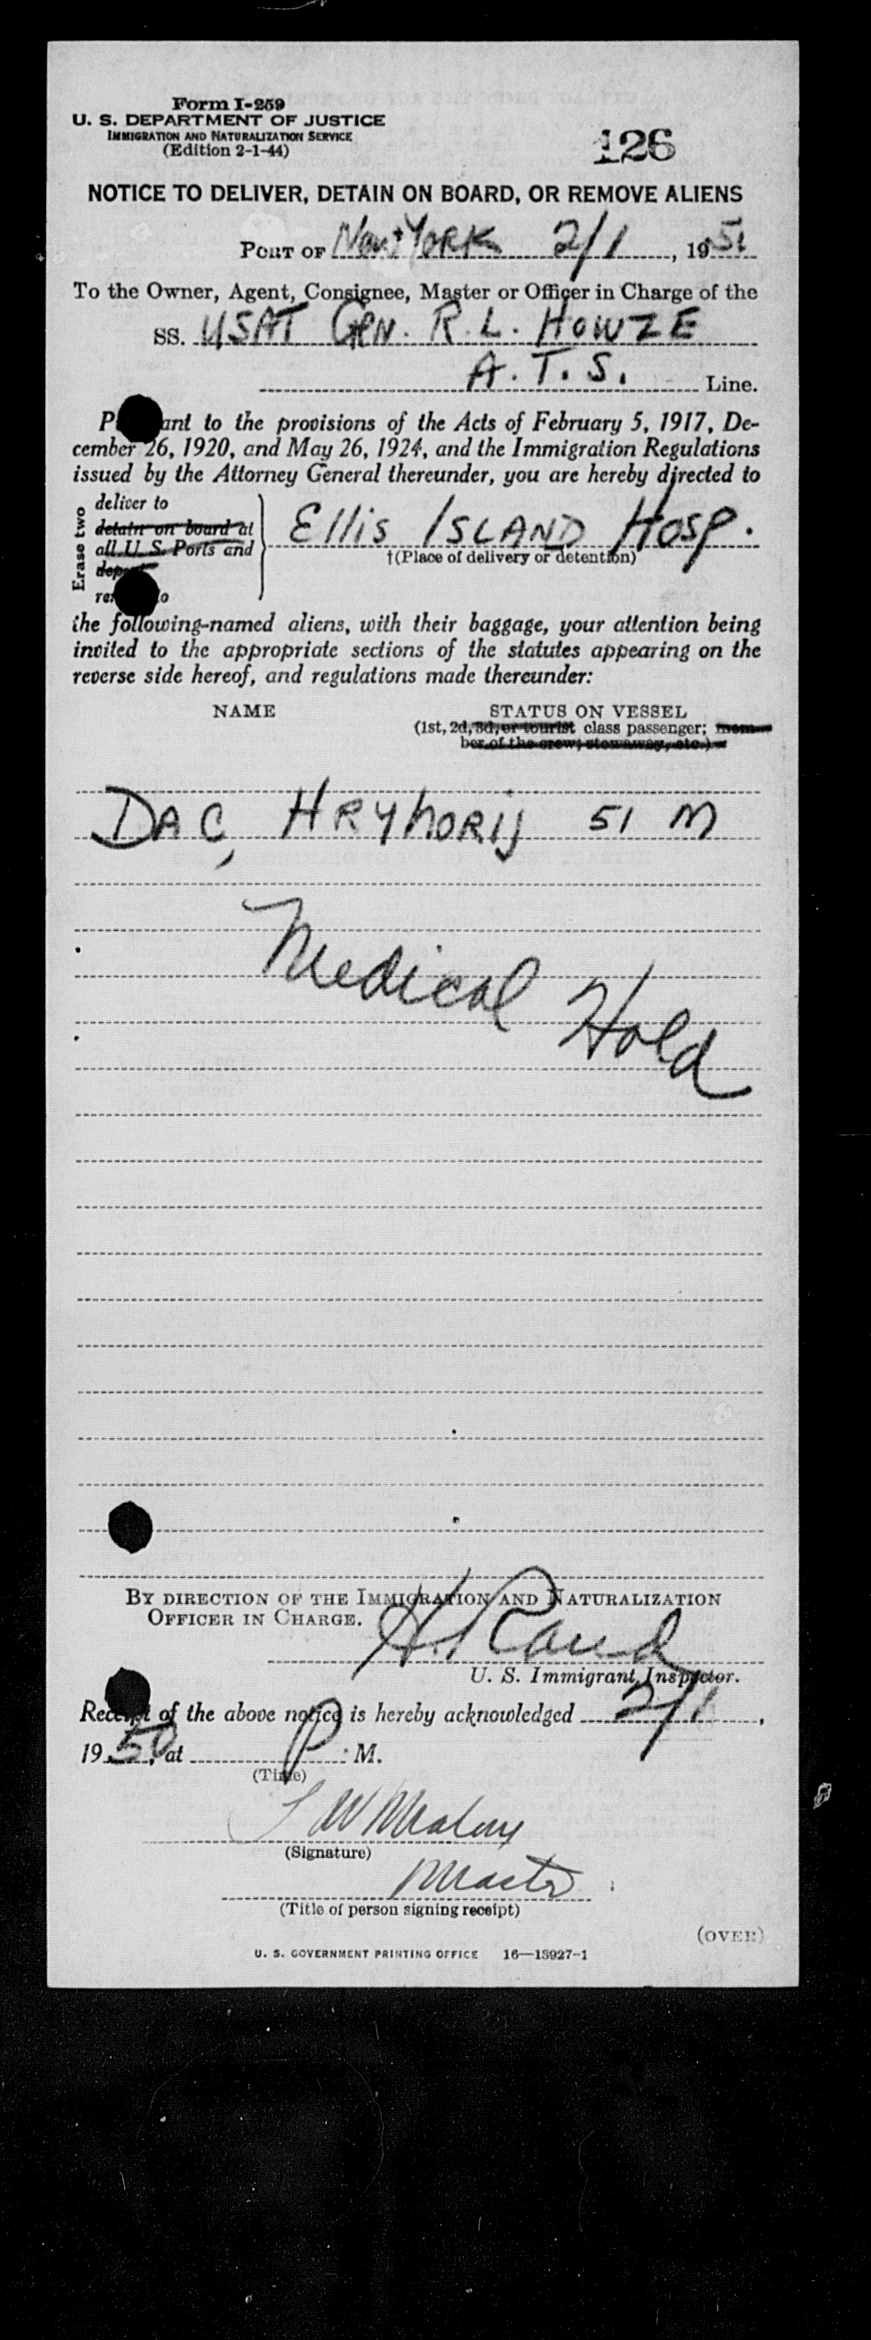 Form I-259
U. S. DEPARTMENT OF JUSTICE
IMMIGRATION AND NATURALIZATION SERVICE
(Edition 2-1-44)
126
NOTICE TO DELIVER, DETAIN ON BOARD, OR REMOVE ALIENS
PORT OF New York 2/1, 1951
To the Owner, Agent, Consignee, Master or Officer in Charge of the
SS. USAT GEN. R. L. HOWZE
A. T. S. Line.
P ant to the provisions of the Acts of February 5, 1917, De-
cember 26, 1920, and May 26, 1924, and the Immigration Regulations
issued by the Attorney General thereunder, you are hereby directed to
Erase two
deliver to
detain on board at
all U. S. Ports and
deport
re o
Ellis ISLAND Hosp.
†(Place of delivery or detention)
the following-named aliens, with their baggage, your attention being
invited to the appropriate sections of the statutes appearing on the
reverse side hereof, and regulations made thereunder:
NAME STATUS ON VESSEL
(1st, 2d, 3d, or tourist class passenger; mem-
ber of the crew; stowaway, etc.)
DAC, HRYHORIJ 51 M
Medical Hold
BY DIRECTION OF THE IMMIGRATION AND NATURALIZATION
OFFICER IN CHARGE.
H. Rand
U. S. Immigrant Inspector.
Receipt of the above notice is hereby acknowledged 2/1,
1950, at P. M.
(Time)
(Signature)
Master
(Title of person signing receipt)
(OVER)
U. S. GOVERNMENT PRINTING OFFICE 16—13927-1